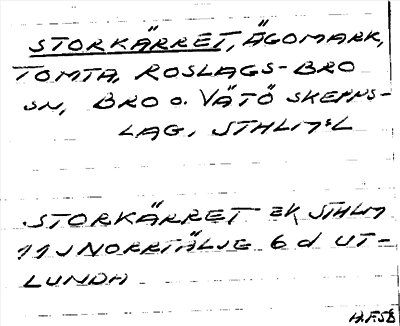 STORKÄRRET, ÄGOMARK,
TOMTA, ROSLAGS-BRO
SN, BRO O. VÄTÖ SKEPPS-
LAG, STHLM:L
STORKÄRRET EK STHLM
11J NORRTÄLJE 6 d UT-
LUNDA
H.F.SB